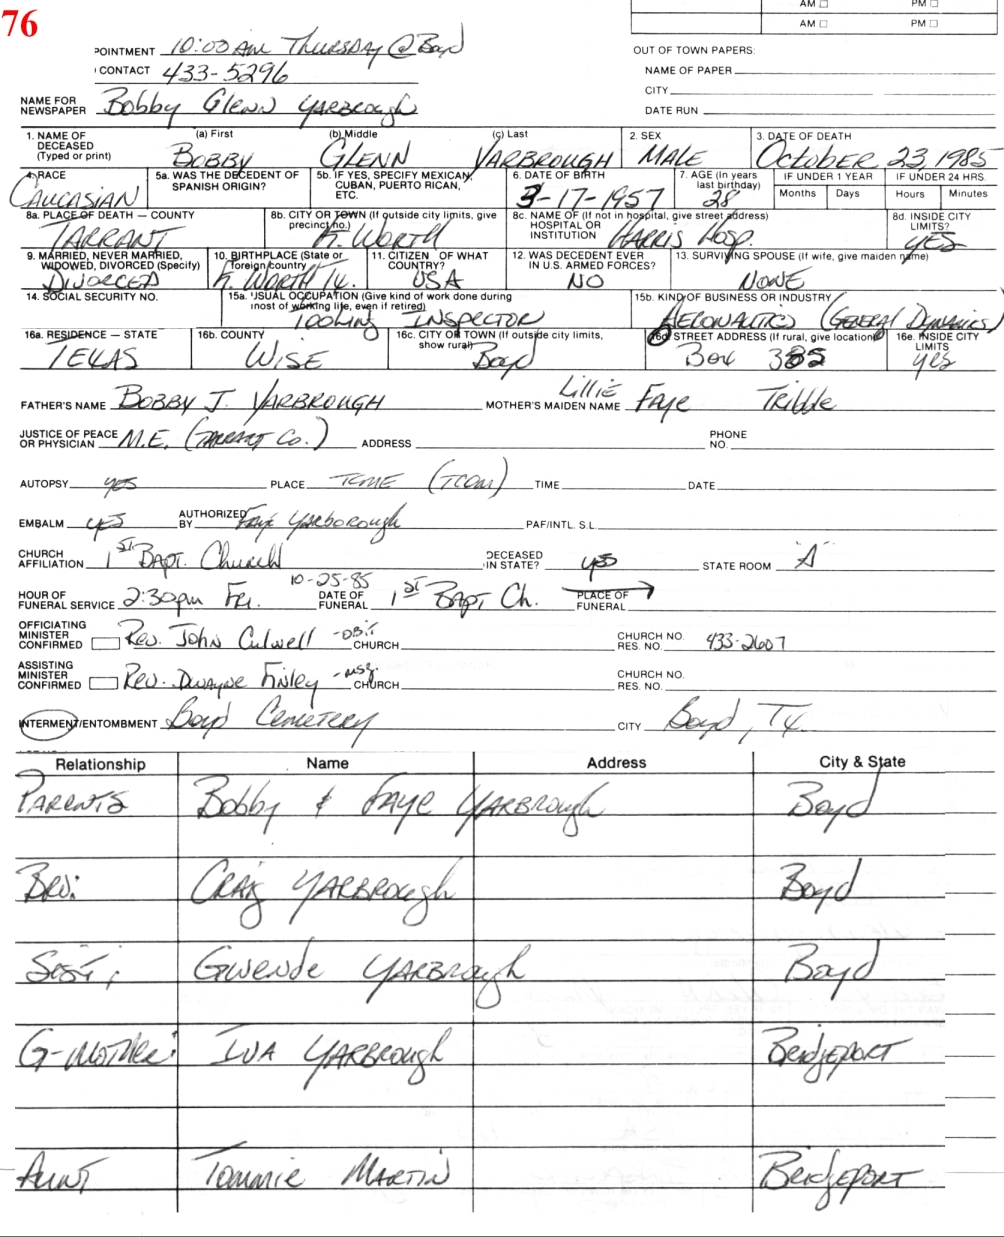 76
AM □ PM □
AM □ PM □
POINTMENT 10:00 AM Thursday @ Boyd
OUT OF TOWN PAPERS:
CONTACT 433-5296
NAME OF PAPER
CITY
NAME FOR NEWSPAPER Bobby Glenn Yarbrough
DATE RUN
1. NAME OF DECEASED (Typed or print) (a) First BOBBY (b) Middle GLENN (c) Last YARBROUGH 2. SEX MALE 3. DATE OF DEATH October 23, 1985
4. RACE CAUCASIAN 5a. WAS THE DECEDENT OF SPANISH ORIGIN? 5b. IF YES, SPECIFY MEXICAN, CUBAN, PUERTO RICAN, ETC. 6. DATE OF BIRTH 3-17-1957 7. AGE (In years last birthday) 28 IF UNDER 1 YEAR Months Days IF UNDER 24 HRS. Hours Minutes
8a. PLACE OF DEATH — COUNTY TARRANT 8b. CITY OR TOWN (If outside city limits, give precinct no.) Ft. WORTH 8c. NAME OF (If not in hospital, give street address) HOSPITAL OR INSTITUTION HARRIS HOSP. 8d. INSIDE CITY LIMITS? YES
9. MARRIED, NEVER MARRIED, WIDOWED, DIVORCED (Specify) DIVORCED 10. BIRTHPLACE (State or foreign country Ft. WORTH TX. 11. CITIZEN OF WHAT COUNTRY? USA 12. WAS DECEDENT EVER IN U.S. ARMED FORCES? NO 13. SURVIVING SPOUSE (If wife, give maiden name) NONE
14. SOCIAL SECURITY NO. 15a. USUAL OCCUPATION (Give kind of work done during most of working life, even if retired) Tooling INSPECTOR 15b. KIND OF BUSINESS OR INDUSTRY AERONAUTICS (GENERAL DYNAMICS)
16a. RESIDENCE — STATE TEXAS 16b. COUNTY WISE 16c. CITY OR TOWN (If outside city limits, show rural) Boyd 16d. STREET ADDRESS (If rural, give location) Box 385 16e. INSIDE CITY LIMITS yes
FATHER'S NAME BOBBY J. YARBROUGH MOTHER'S MAIDEN NAME Lillie Faye Tribble
JUSTICE OF PEACE OR PHYSICIAN M.E. (TARRANT Co.) ADDRESS PHONE NO.
AUTOPSY yes PLACE TCME (TCOM) TIME DATE
EMBALM yes AUTHORIZED BY Faye Yarborough PAF/INTL. S.L.
CHURCH AFFILIATION 1ST BAPT. Church DECEASED IN STATE? yes STATE ROOM "A"
HOUR OF FUNERAL SERVICE 2:30pm Fri. 10-25-85 DATE OF FUNERAL 1ST BAPT Ch. PLACE OF FUNERAL
OFFICIATING MINISTER CONFIRMED □ Rev. John Culwell -OBIT CHURCH CHURCH NO. RES. NO. 433-2607
ASSISTING MINISTER CONFIRMED □ Rev. Dwayne Finley -msg. CHURCH CHURCH NO. RES. NO.
INTERMENT/ENTOMBMENT Boyd Cemetery CITY Boyd, TX.
Relationship Name Address City & State
PARENTS Bobby & FAYE YARBROUGH Boyd
BRO: CRAIG YARBROUGH Boyd
SIST: GWENDE YARBROUGH Boyd
G-MOTHER: IVA YARBROUGH BRIDGEPORT
AUNT TOMMIE MARTIN BRIDGEPORT